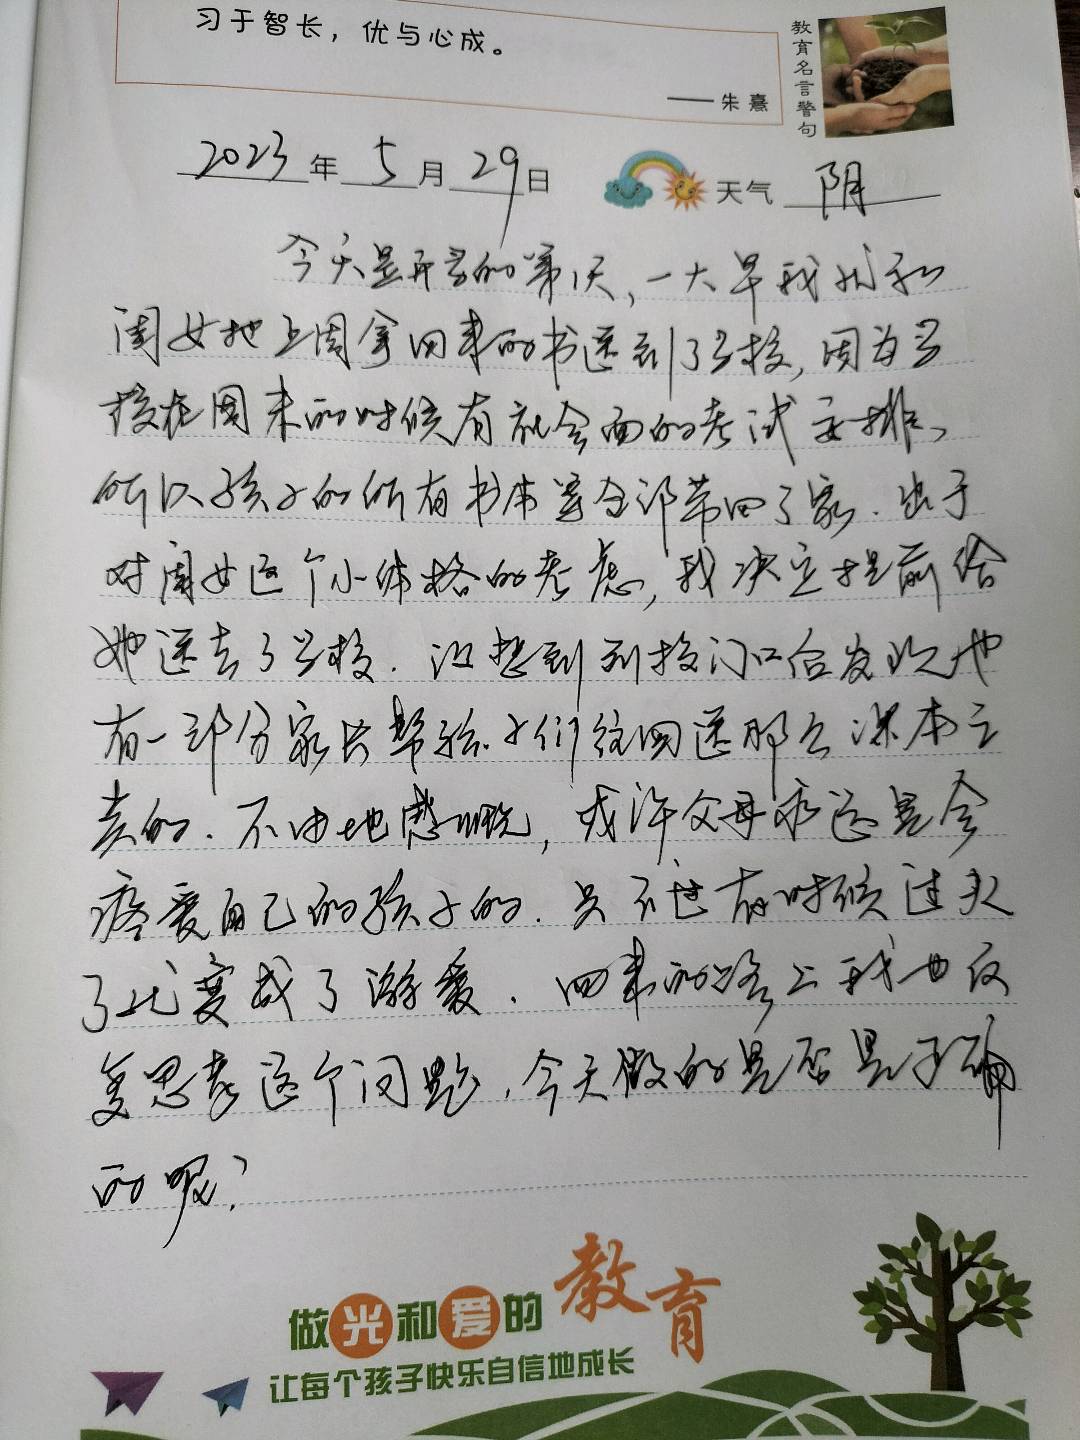 习于智长，优与心成。
——朱熹
教育名言警句
2023年5月29日 天气 阴
今天是开学的第1天，一大早我就和
闺女把上周拿回来的书送到了学校，因为学
校在周末的时候有社会面的考试安排、
所以孩子的所有书本等全部带回了家．出于
对闺女这个小体格的考虑，我决定提前给
她送去了学校．没想到到校门口后发现也
有一部分家长帮孩子们往回送那么课本之
类的．不由地感慨，或许父母永远是会
疼爱自己的孩子的．只不过有时候过头
了就变成了溺爱．回来的路上我也反
复思考这个问题，今天做的是否是正确
的呢？
做光和爱的教育
让每个孩子快乐自信地成长